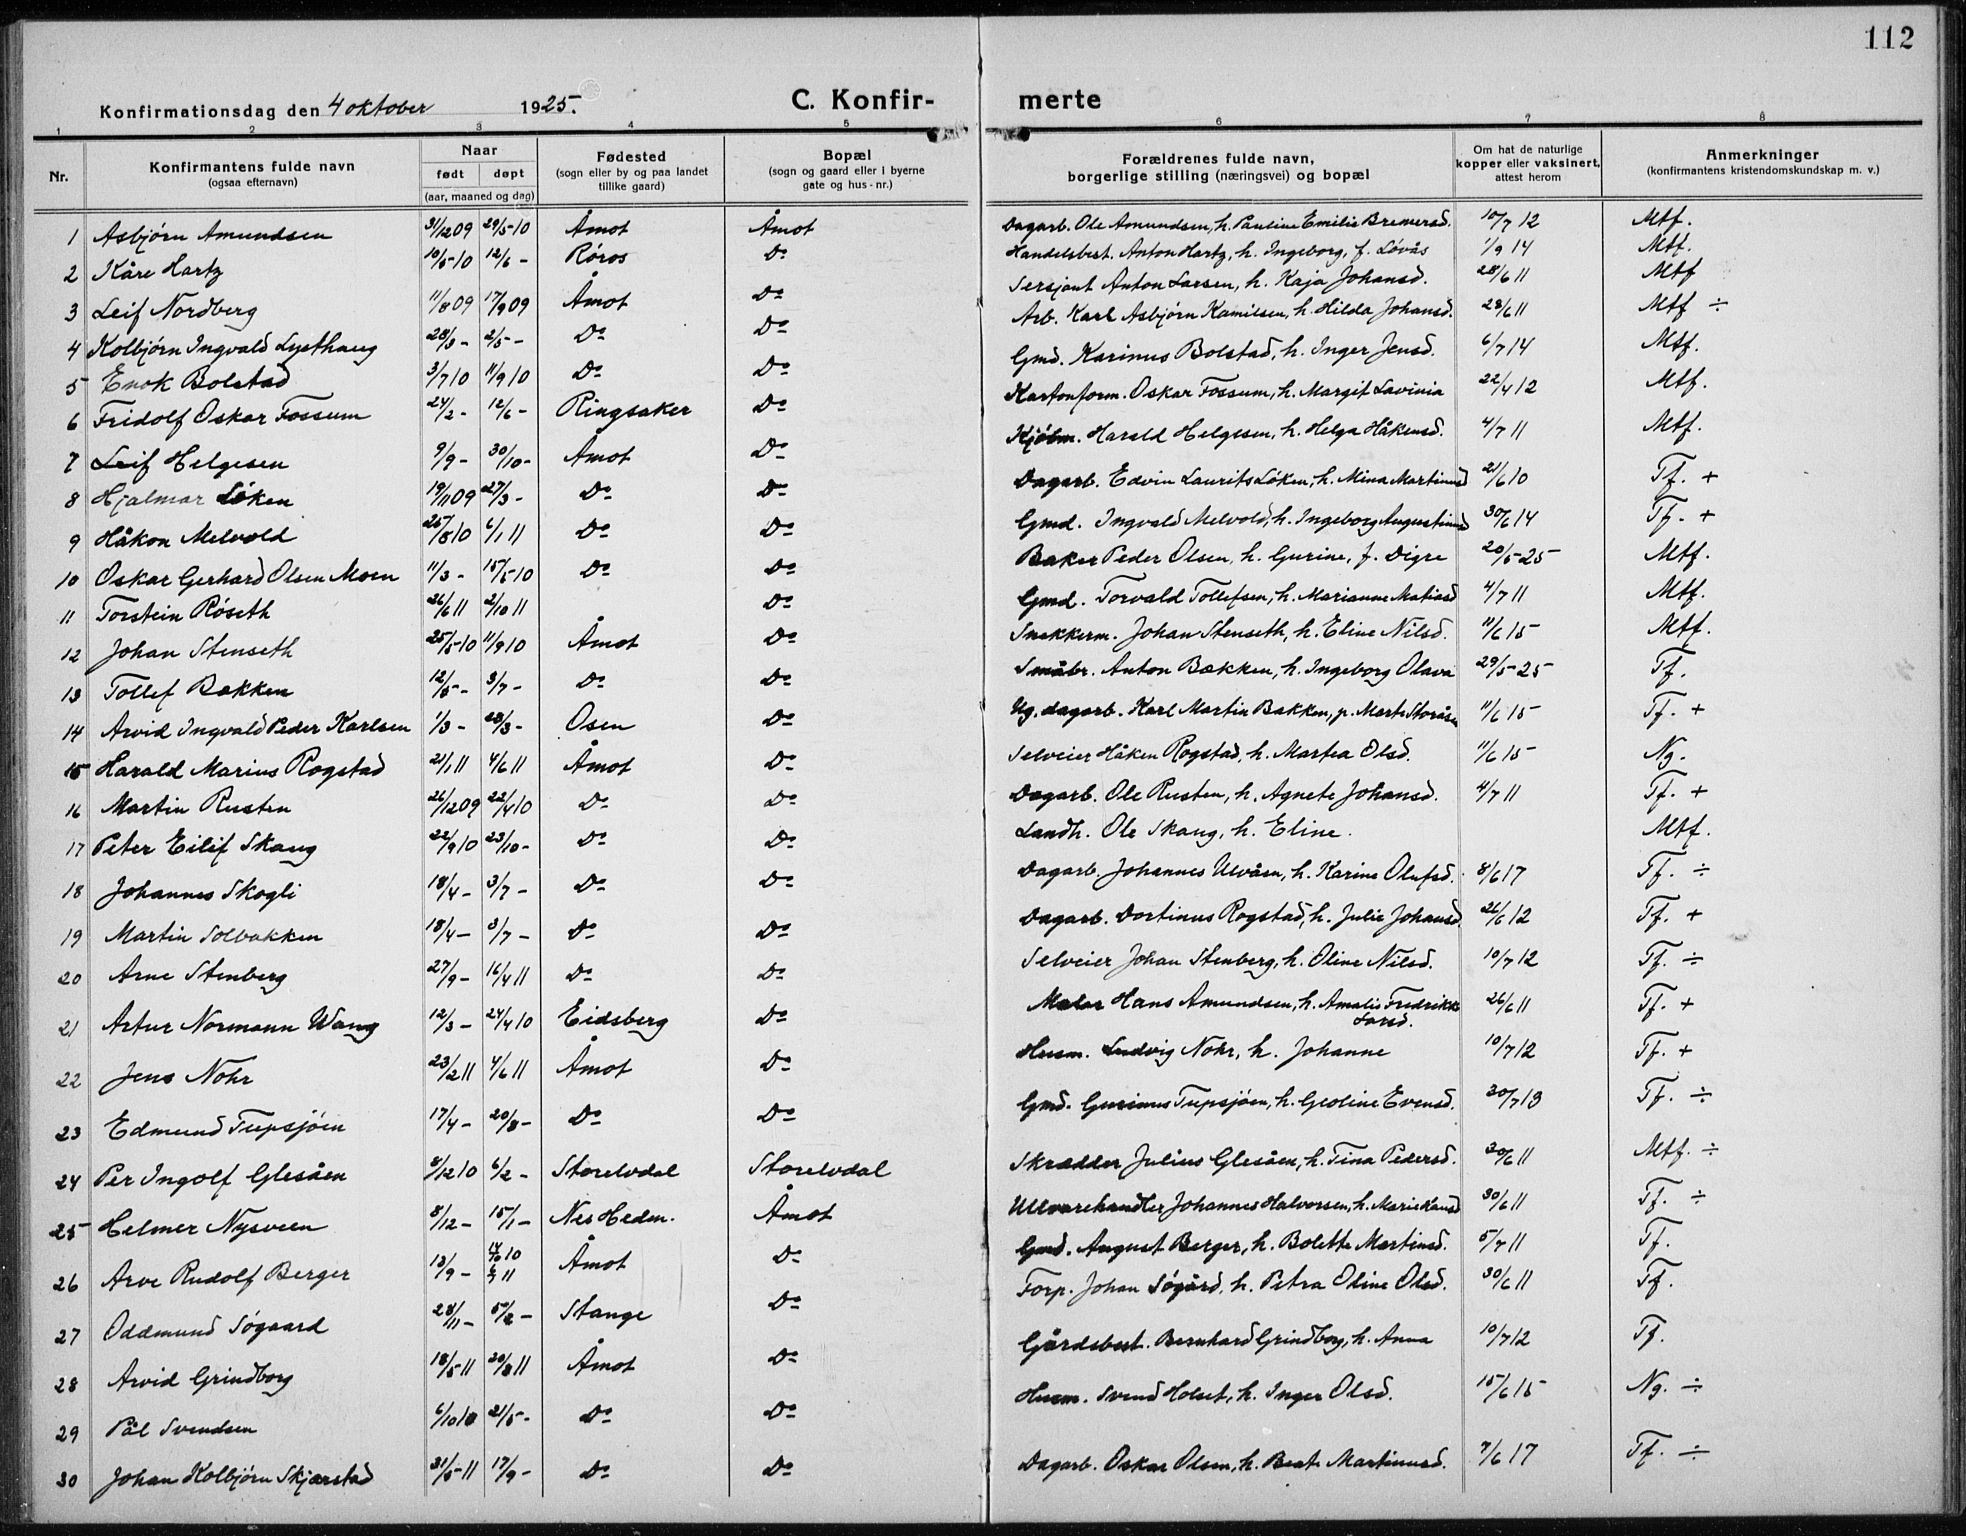 112
Konfirmationsdag den 4 oktober 1925. C. Konfir- merte
1 2 3 4 5 6 7 8
Nr. Konfirmantens fulde navn (ogsaa efternavn) Naar født døpt (aar, maaned og dag) Fødested (sogn eller by og paa landet tillike gaard) Bopæl (sogn og gaard eller i byerne gate og hus-nr.) Forældrenes fulde navn, borgerlige stilling (næringsvei) og bopæl Om hat de naturlige kopper eller vaksinert, attest herom Anmerkninger (konfirmantens kristendomskundskap m. v.)
1 Asbjørn Amundsen 31/12 09 29/5-10 Åmot Åmot Dagarb. Ole Amundsen, h. Pauline Emilie Bremersd. 10/7 12 Mtf.
2 Kåre Hartz 10/5-10 12/6 - Røros Do Handelsbest. Anton Hartz, h. Ingeborg, f. Løvås 1/9 14 Mtf.
3 Leif Nordberg 11/8 09 17/9 09 Åmot Do Sersjant Anton Larsen, h. Kaja Johansd. 28/6 11 Mtf
4 Kolbjørn Ingvald Lysthaug 28/3 - 2/5 - Do Do Arb. Karl Asbjørn Kamilsen, h. Hilda Johansd. 28/6 11 Mtf ÷
5 Enok Bolstad 3/7 10 11/9 10 Do Do Gmd. Karinus Bolstad, h. Inger Jensd. 6/7 14 Mtf.
6 Fridolf Oskar Fossum 24/2 - 12/6 - Ringsaker Do Kartonform. Oskar Fossum, h. Margit Lavinia 22/4 12 Mtf.
7 Leif Helgesen 9/9 - 30/10 - Åmot Do Kjøbm. Harald Helgesen, h. Helga Håkensd. 4/7 11 Mtf.
8 Hjalmar Løken 19/11 09 27/3 - Do Do Dagarb. Edvin Laurits Løken, h. Mina Martinusd 21/6 10 Tf. +
9 Håkon Melvold 25/8 10 6/1 11 Do Do Gmd. Ingvald Melvold, h. Ingeborg Augustinusd 30/6 14 Tf. +
10 Oskar Gerhard Olsen Moen 11/3 - 15/5-10 Do Do Baker Peder Olsen, h. Gurine, f. Digre 20/5-25 Mtf.
11 Torstein Røseth 26/6 11 2/10 11 Do Gmd. Torvald Tollefsen, h. Marianne Matiasd 4/7 11 Mtf.
12 Johan Stenseth 25/5-10 11/9 10 Åmot Do Snekkerm. Johan Stenseth, h. Eline Nilsd. 11/6 15 Mtf.
13 Tollef Bækken 12/5 - 3/7 - Do Do Småbr. Anton Bækken, h. Ingeborg Olava 29/5-25 Tf.
14 Arvid Ingvald Peder Karlsen 1/3 - 28/3 - Osen Do Ug. dagarb. Karl Martin Bakken, p. Marte Storåsen 11/6 15 Tf. +
15 Harald Marius Rogstad 21/1 11 4/6 11 Åmot Do Selveier Håken Rogstad, h. Martea Olsd. 11/6 15 Ng.
16 Martin Rusten 26/12 09 22/4 10 Do Do Dagarb. Ole Rusten, h. Agnete Johansd. 4/7 11 Tf. +
17 Peter Eilif Skaug 22/9 10 23/10 - Do Do Landh. Ole Skaug, h. Eline. Mtf.
18 Johannes Skogli 18/4 - 3/7 - Do Do Dagarb. Johannes Ulvåen, h. Karine Olufsd. 8/6 17 Tf. ÷
19 Martin Solbakken 18/4 - 3/7 - Do Do Dagarb. Dortinus Rogstad, h. Julie Johansd. 26/6 12 Tf. +
20 Arne Stenberg 27/9 - 16/4 11 Do Do Selveier Johan Stenberg, h. Oline Nilsd. 10/7 12 Tf. ÷
21 Artur Normann Wang 12/3 - 24/4 10 Eidsberg Do Maler Hans Amundsen, h. Amalie Fredrikke Larsd. 26/6 11 Tf. +
22 Jens Nohr 23/2 11 4/6 11 Åmot Do Husm. Ludvig Nohr, h. Johanne 10/7 12 Tf. +
23 Edmund Tupsjøen 17/4 - 20/8 - Do Do Gmd. Gurinus Tupsjøen, h. Geoline Evensd. 30/7 13 Tf. ÷
24 Per Ingolf Glesåen 8/12 10 6/2 - Storelvdal Storelvdal Skrædder Julius Glesåen, h. Tina Pedersd. 30/6 11 Mtf. ÷
25 Helmer Nysveen 8/12 - 15/1 - Nes Hedm. Åmot Ullvarehandler Johannes Halvorsen, h. Marie Hansd 30/6 11 Tf. ÷
26 Arve Rudolf Berger 13/9 - Åmot Do Gmd. August Berger, h. Bolette Martinsd. 5/7 11 Tf.
27 Oddmund Søgaard 28/11 - 5/2 - Stange Do Forp. Johan Søgård, h. Petra Oline Olsd. 30/6 11 Tf.
28 Arvid Grindborg 18/5 11 20/8 11 Åmot Do Gårdsbest. Bernhard Grindborg, h. Anna 10/7 12 Tf.
29 Pål Svendsen 6/10 10 21/5 - Do Do Husm. Svend Holset, h. Inger Olsd. 15/6 15 Ng. ÷
30 Johan Kolbjørn Skjærstad 31/5-11 17/9 - Do Do Dagarb. Oskar Olsen, h. Beate Martinusd. 7/6 17 Tf. ÷